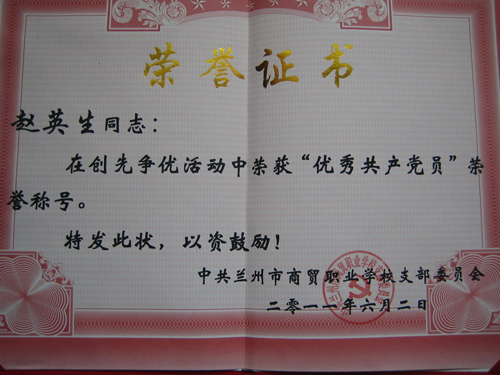 荣誉证书
赵英生同志：
在创先争优活动中荣获“优秀共产党员”荣
誉称号。
特发此状，以资鼓励！
中共兰州市商贸职业学校支部委员会
二零一一年六月二日